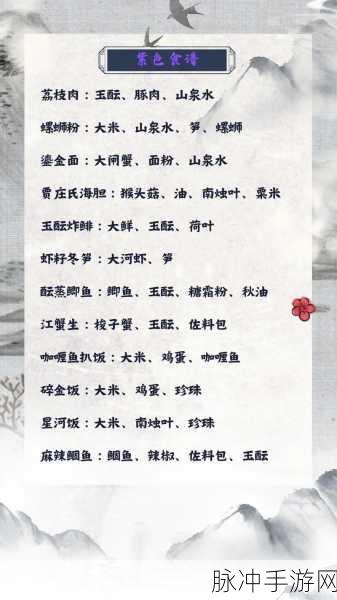 紫色食谱
荔枝肉：玉酝、豚肉、山泉水
螺蛳粉：大米、山泉水、笋、螺蛳
鎏金面：大闸蟹、面粉、山泉水
贾庄氏海胆：猴头菇、油、南烛叶、粟米
玉酝炸鲱：大鲜、玉酝、荷叶
虾籽冬笋：大河虾、笋
酝蒸鲫鱼：鲫鱼、玉酝、糖霜粉、秋油
江蟹生：梭子蟹、玉酝、佐料包
咖喱鱼扒饭：大米、鸡蛋、咖喱鱼
碎金饭：大米、鸡蛋、珍珠
星河饭：大米、南烛叶、珍珠
麻辣鲴鱼：鲴鱼、辣椒、佐料包、玉酝
脉冲手游网